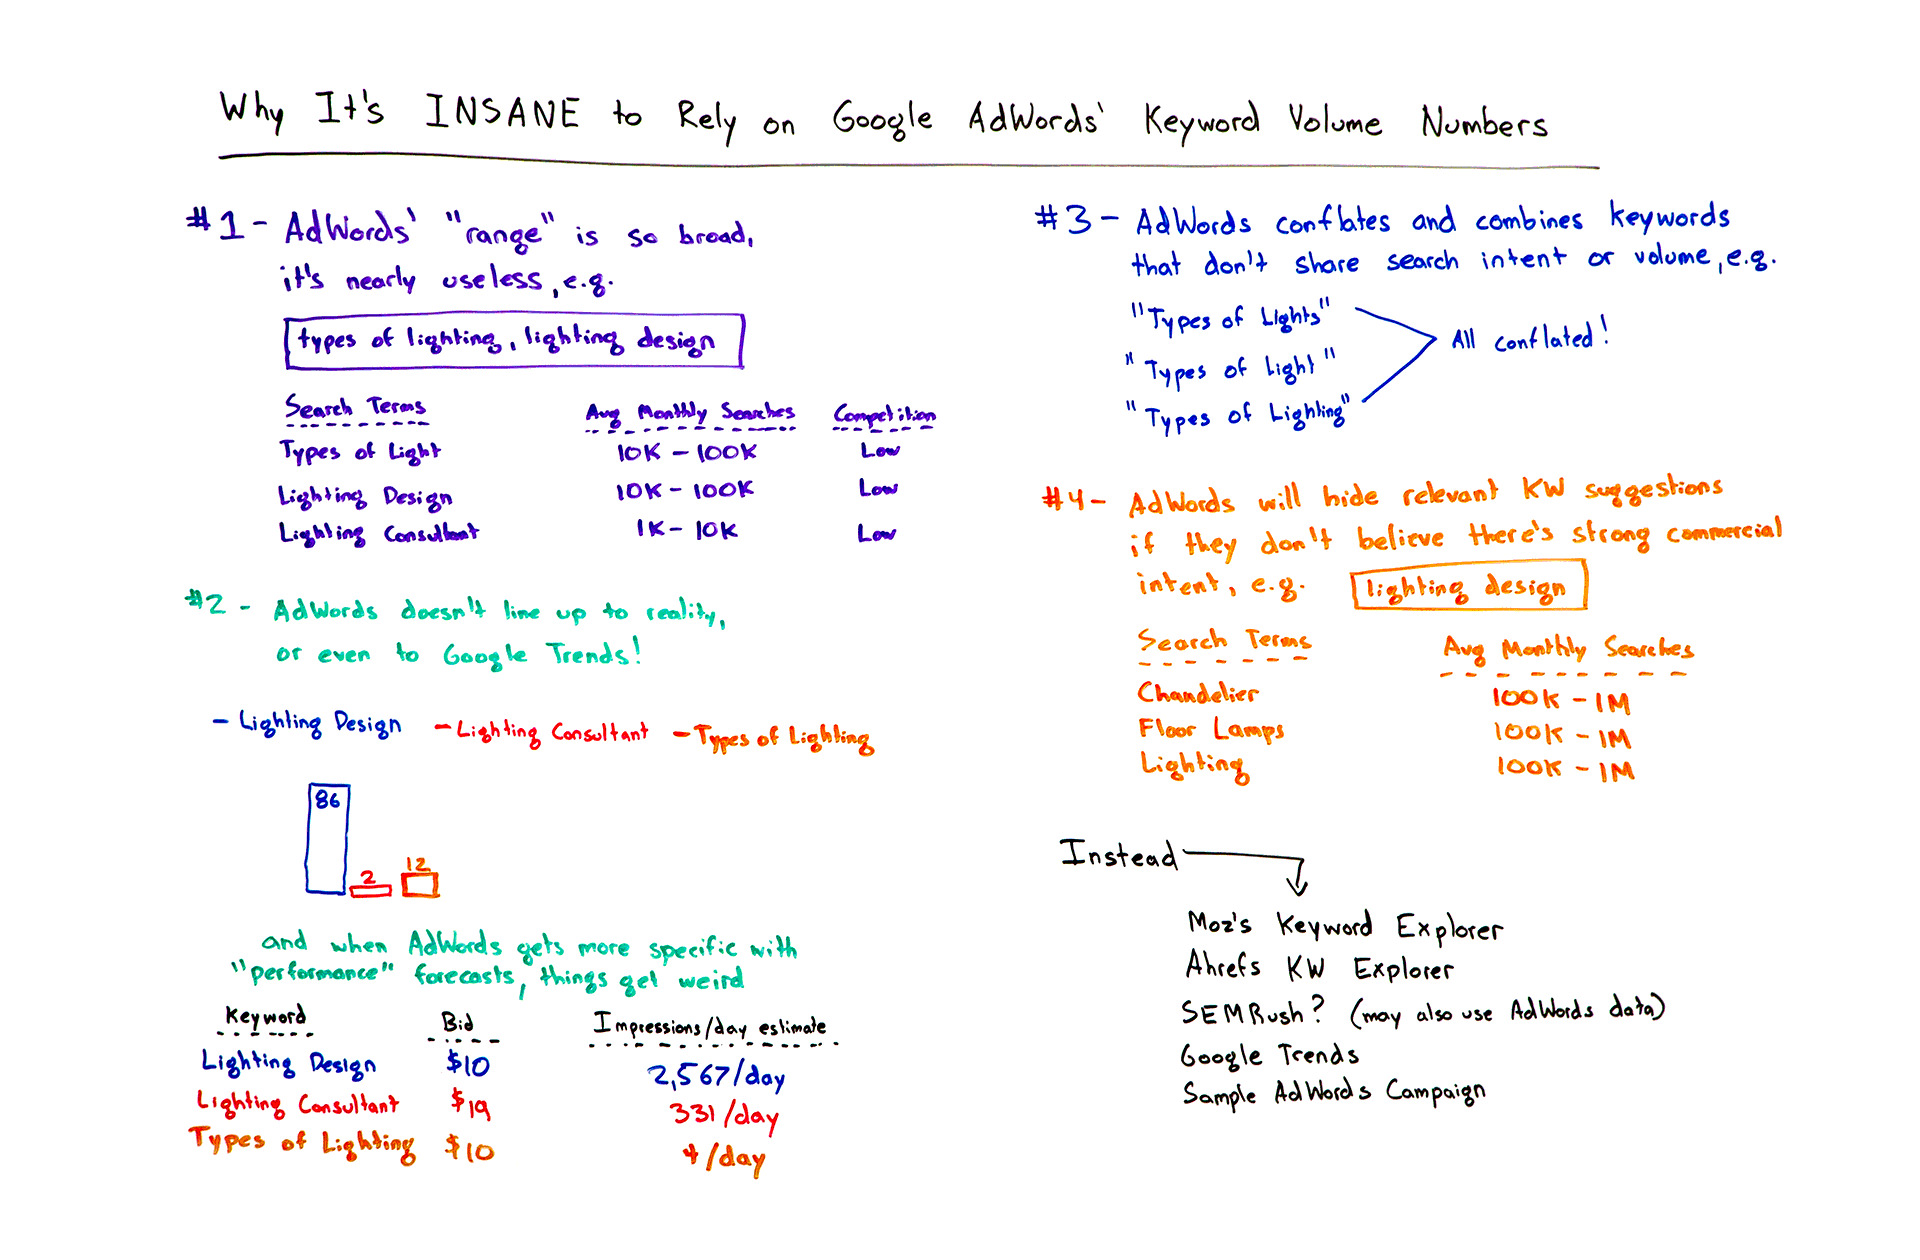 Why It's INSANE to Rely on Google AdWords' Keyword Volume Numbers
#1 - AdWords' "range" is so broad,
it's nearly useless, e.g.
types of lighting, lighting design
Search Terms Avg Monthly Searches Competition
Types of Light 10K - 100K Low
Lighting Design 10K - 100K Low
Lighting Consultant 1K - 10K Low
#2 - AdWords doesn't line up to reality,
or even to Google Trends!
- Lighting Design - Lighting Consultant - Types of Lighting
86
2
12
and when AdWords gets more specific with
"performance" forecasts, things get weird
Keyword Bid Impressions/day estimate
Lighting Design $10 2,567/day
Lighting Consultant $19 331/day
Types of Lighting $10 4/day
#3 - AdWords conflates and combines keywords
that don't share search intent or volume, e.g.
"Types of Lights"
"Types of Light"
"Types of Lighting"
All conflated!
#4 - AdWords will hide relevant KW suggestions
if they don't believe there's strong commercial
intent, e.g. lighting design
Search Terms Avg Monthly Searches
Chandelier 100K - 1M
Floor Lamps 100K - 1M
Lighting 100K - 1M
Instead
Moz's Keyword Explorer
Ahrefs KW Explorer
SEMRush? (may also use AdWords data)
Google Trends
Sample AdWords Campaign